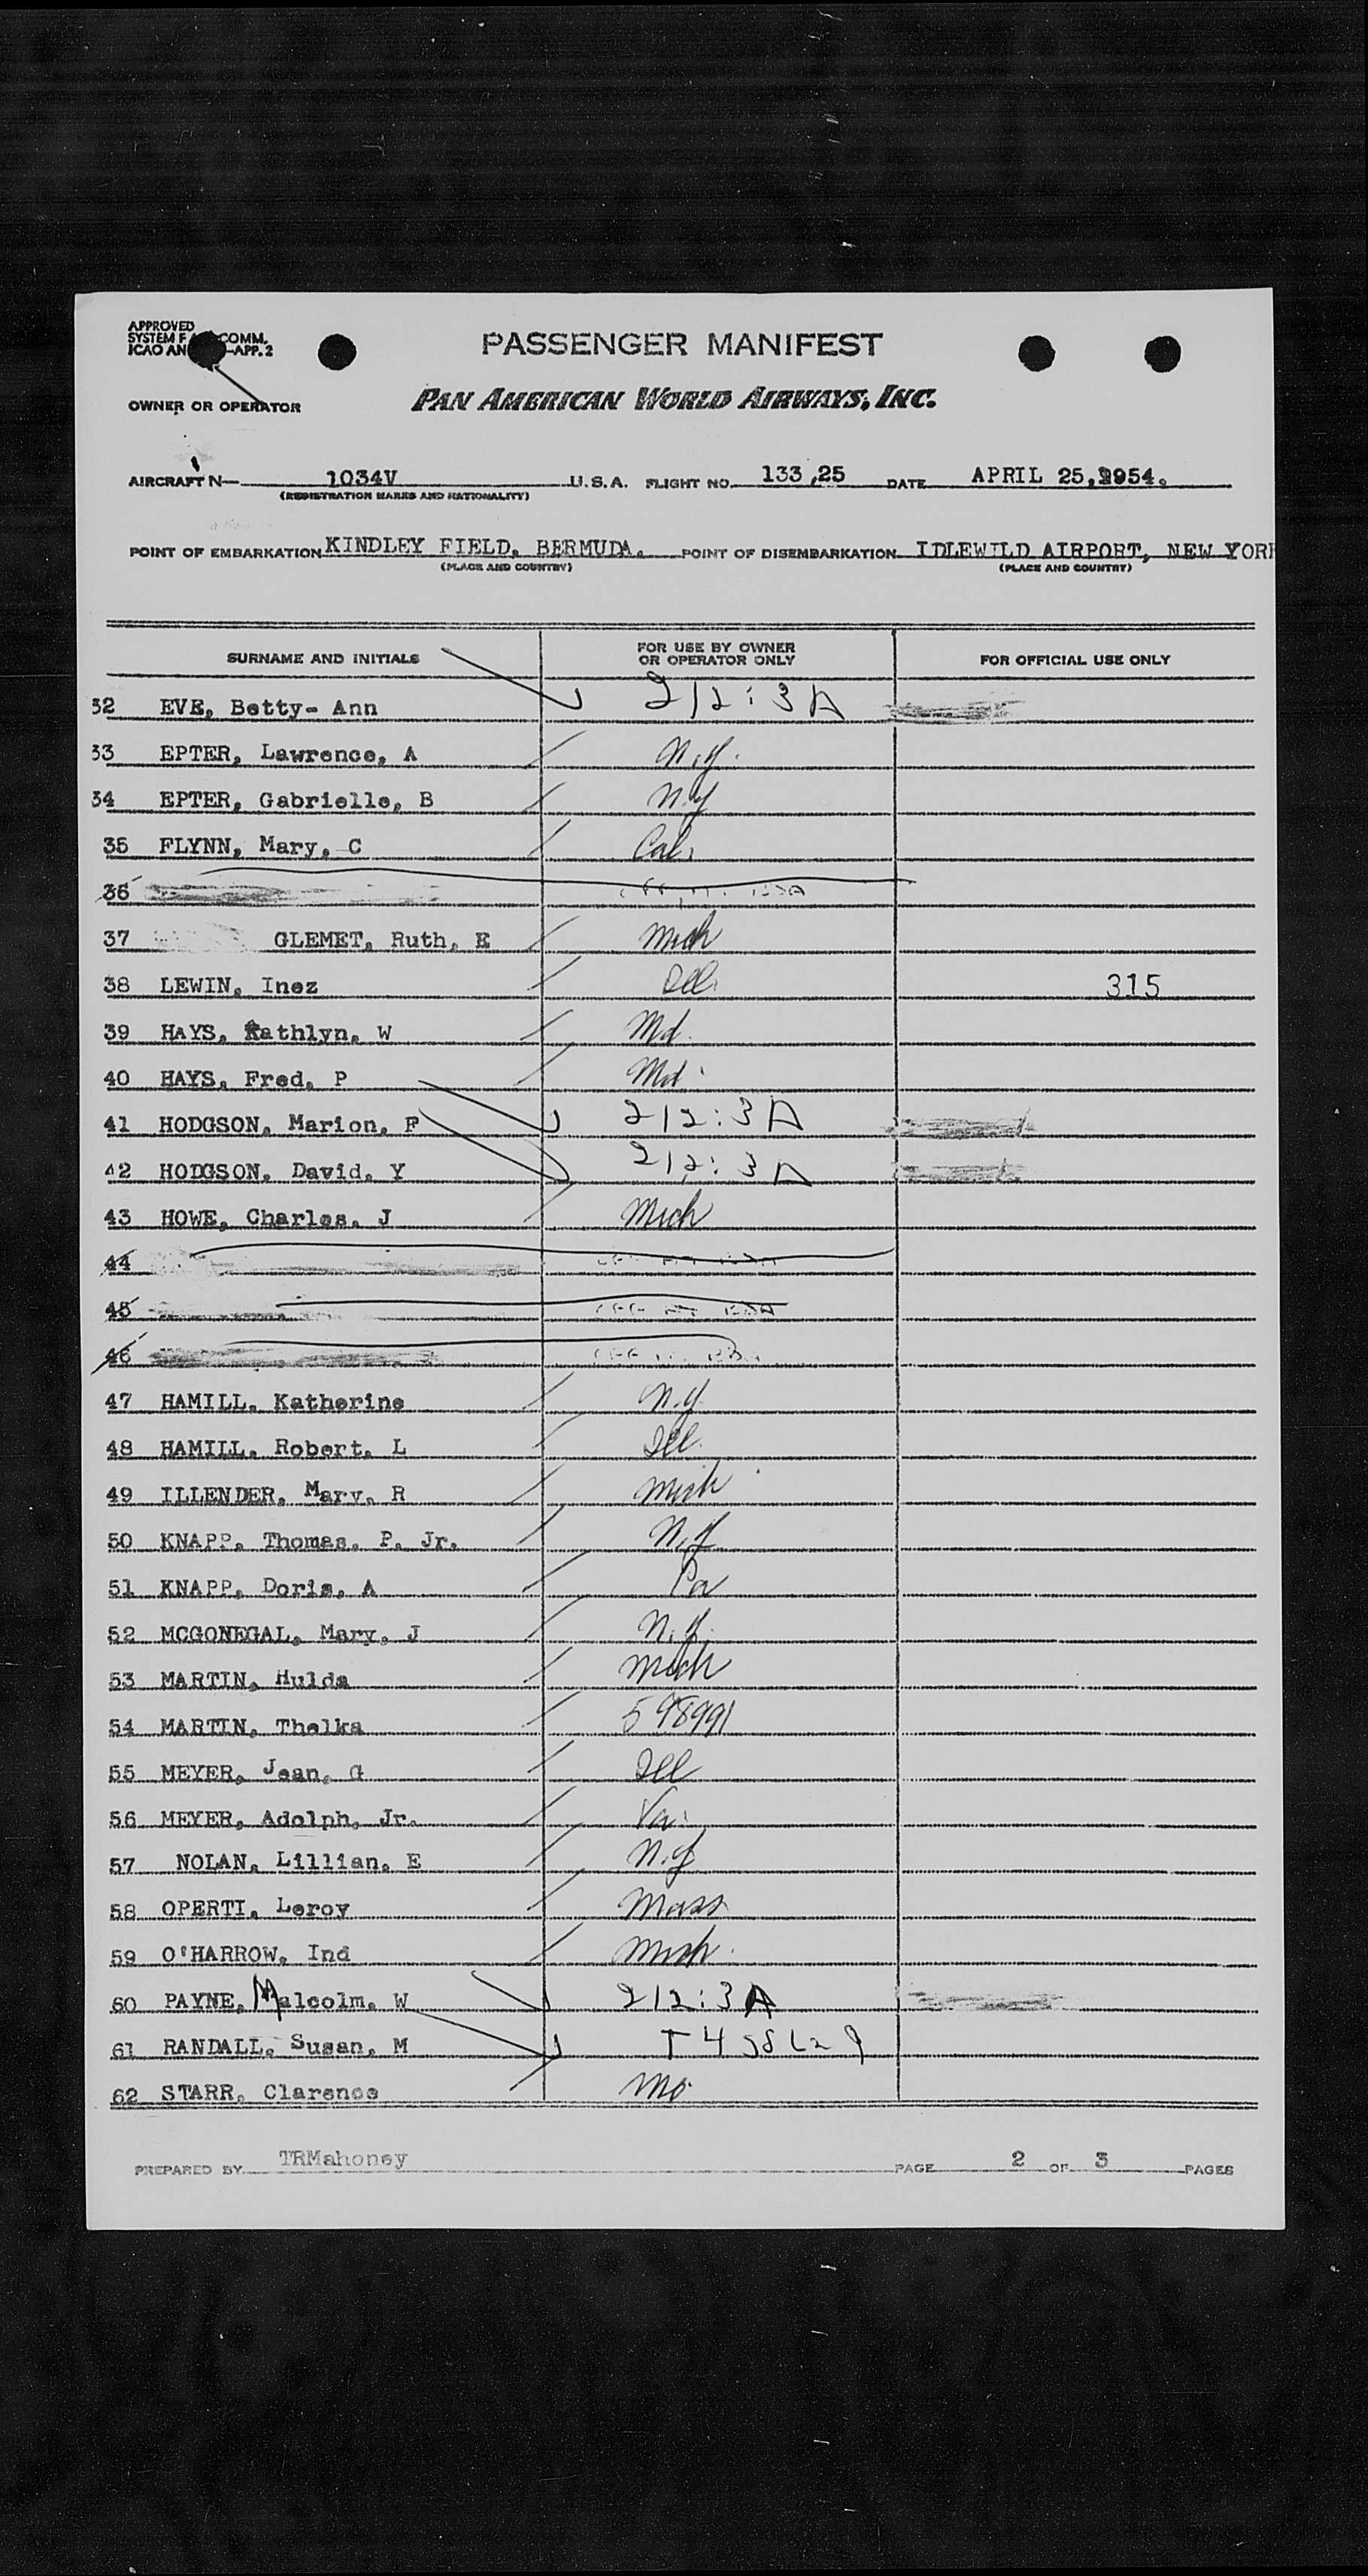 APPROVED
SYSTEM F COMM.
ICAO AN -APP. 2
PASSENGER MANIFEST
OWNER OR OPERATOR PAN AMERICAN WORLD AIRWAYS, INC.
AIRCRAFT N— 1034V U.S.A. FLIGHT NO. 133,25 DATE APRIL 25, 1954.
(REGISTRATION MARKS AND NATIONALITY)
POINT OF EMBARKATION KINDLEY FIELD, BERMUDA. POINT OF DISEMBARKATION IDLEWILD AIRPORT, NEW YORK
(PLACE AND COUNTRY) (PLACE AND COUNTRY)
SURNAME AND INITIALS FOR USE BY OWNER OR OPERATOR ONLY FOR OFFICIAL USE ONLY
32 EVE, Betty- Ann 212:3A
33 EPTER, Lawrence, A N.Y.
34 EPTER, Gabrielle, B N.Y
35 FLYNN, Mary, C Cal.
36
37 GLEMET, Ruth, E Mich
38 LEWIN, Inez 315
39 HAYS, Kathlyn, W Md.
40 HAYS, Fred, P Md.
41 HODGSON, Marion, F 212:3A
42 HODGSON, David, Y 212:3A
43 HOWE, Charles, J Mich
44
45
46
47 HAMILL, Katherine N.Y.
48 HAMILL, Robert, L Ill.
49 ILLENDER, Mary, R Mich
50 KNAPP, Thomas, P. Jr. N.Y
51 KNAPP, Doris, A Pa
52 MCGONEGAL, Mary, J N.Y.
53 MARTIN, Hulda Mich
54 MARTIN, Thelka 598991
55 MEYER, Jean, G Ill
56 MEYER, Adolph, Jr. Va.
57 NOLAN, Lillian, E N.Y
58 OPERTI, Leroy Mass.
59 O'HARROW, Ind Mich.
60 PAYNE, Malcolm, W 212:3A
61 RANDALL, Susan, M
62 STARR, Clarence Mo.
PREPARED BY TRMahoney PAGE 2 OF 3 PAGES